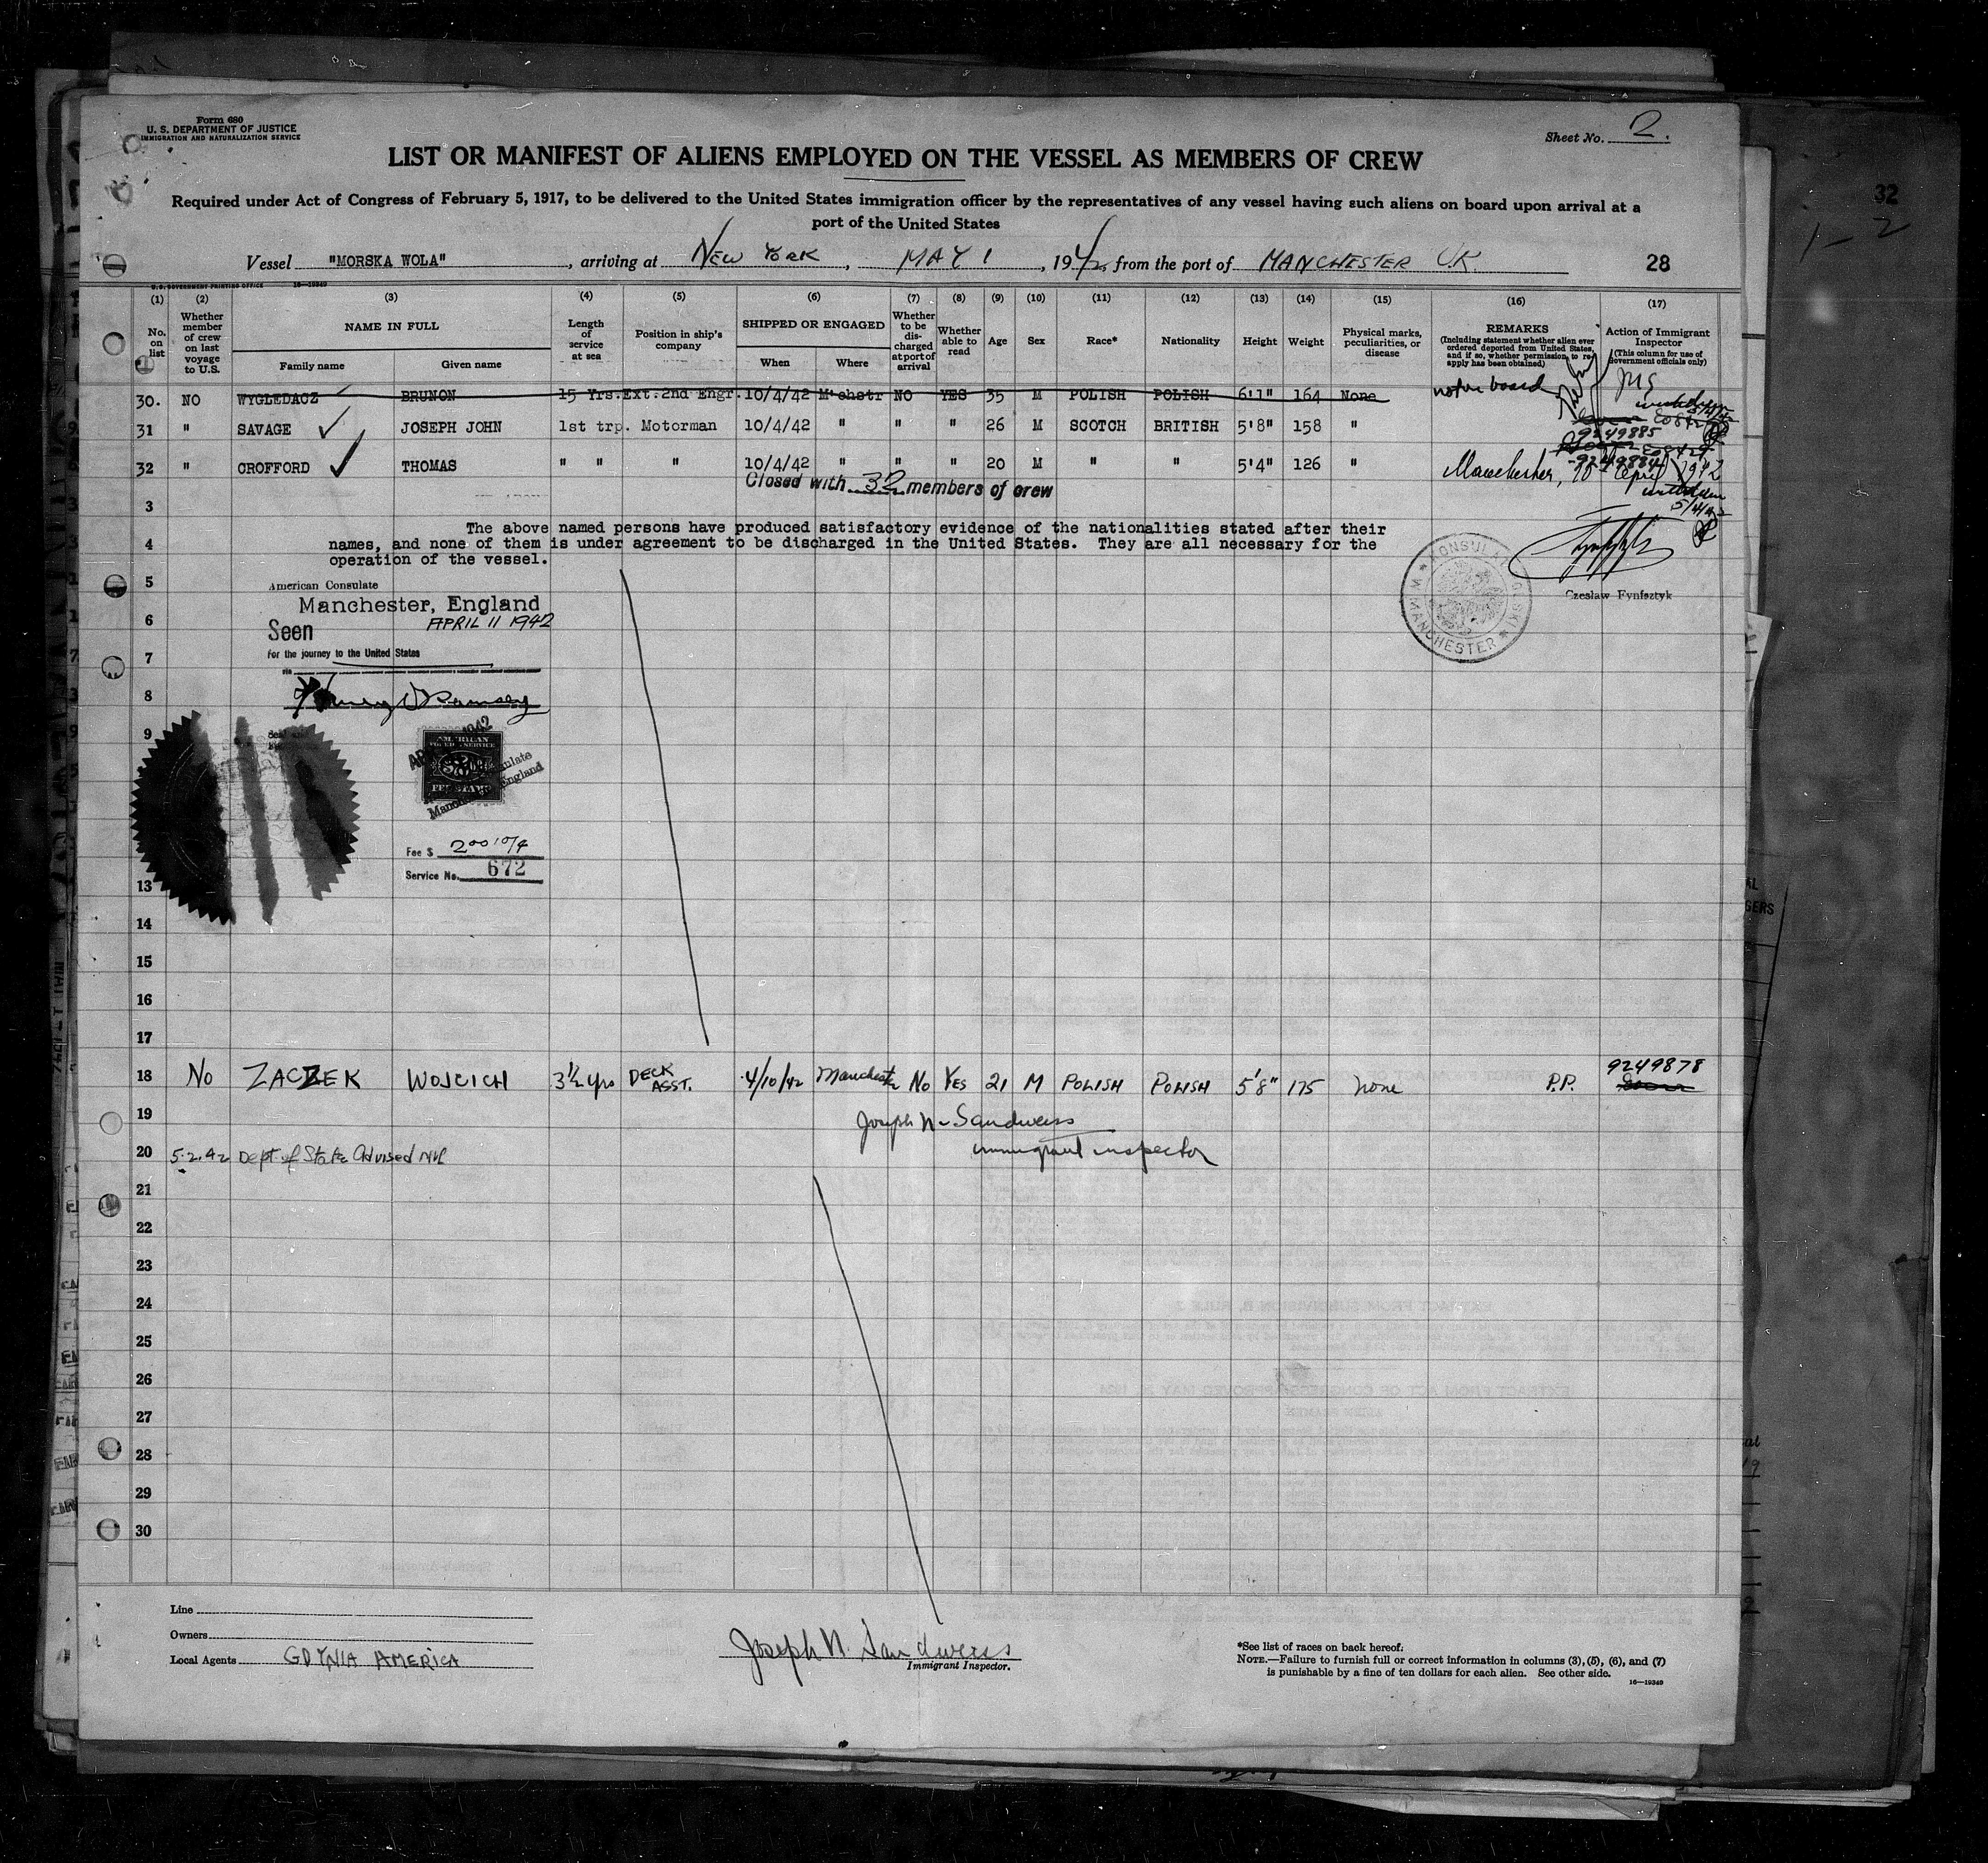 Form 680
U. S. DEPARTMENT OF JUSTICE
IMMIGRATION AND NATURALIZATION SERVICE
Sheet No. 2.
LIST OR MANIFEST OF ALIENS EMPLOYED ON THE VESSEL AS MEMBERS OF CREW
Required under Act of Congress of February 5, 1917, to be delivered to the United States immigration officer by the representatives of any vessel having such aliens on board upon arrival at a
port of the United States
32
1-2
Vessel "MORSKA WOLA", arriving at NEW YORK, MAY 1, 1942 from the port of MANCHESTER U.K.
28
U.S. GOVERNMENT PRINTING OFFICE 16—19349
(1) (2) (3) (4) (5) (6) (7) (8) (9) (10) (11) (12) (13) (14) (15) (16) (17)
No. on list
Whether member of crew on last voyage to U.S.
NAME IN FULL
Family name
Given name
Length of service at sea
Position in ship's company
SHIPPED OR ENGAGED
When
Where
Whether to be discharged at port of arrival
Whether able to read
Age
Sex
Race*
Nationality
Height
Weight
Physical marks, peculiarities, or disease
REMARKS
(Including statement whether alien ever ordered deported from United States, and if so, whether permission to reapply has been obtained)
Action of Immigrant Inspector
(This column for use of Government officials only)
30. NO WYGLEDACZ BRUNON 15 Yrs. Ext. 2nd Engr. 10/4/42 M'chstr NO YES 35 M POLISH POLISH 6'1" 164 None not on board
31 " SAVAGE JOSEPH JOHN 1st trp. Motorman 10/4/42 " " " 26 M SCOTCH BRITISH 5'8" 158 " 9249885
32 " CROFFORD THOMAS " " " 10/4/42 " " " 20 M " " 5'4" 126 " 9249884
Manchester, 10th April 1942
Closed with 32 members of crew
3
The above named persons have produced satisfactory evidence of the nationalities stated after their
4
names, and none of them is under agreement to be discharged in the United States. They are all necessary for the
operation of the vessel.
5 American Consulate
Czeslaw Fynfsztyk
Manchester, England
6 Seen APRIL 11 1942
7 for the journey to the United States
MANCHESTER
8
9
Fee $ 2.00 10/4
Service No. 672
13
14
15
16
17
18 No ZACZEK WOJCICH 3½ yrs DECK ASST. 4/10/42 Manchester No YES 21 M POLISH POLISH 5'8" 175 none P.P. 9249878
19 Joseph N. Sandweiss
immigrant inspector
20 5.2.42 Dept of State Advised
21
22
23
24
25
26
27
28
29
30
Line
Owners
Local Agents GDYNIA AMERICA
Joseph N. Sandweiss
Immigrant Inspector.
*See list of races on back hereof.
NOTE.—Failure to furnish full or correct information in columns (3), (5), (6), and (7)
is punishable by a fine of ten dollars for each alien. See other side.
16—19349